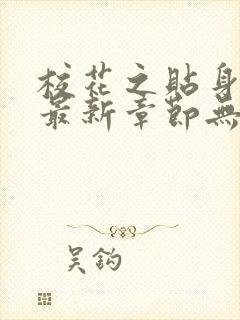 校花之貼身
最新章節無
吴鈎